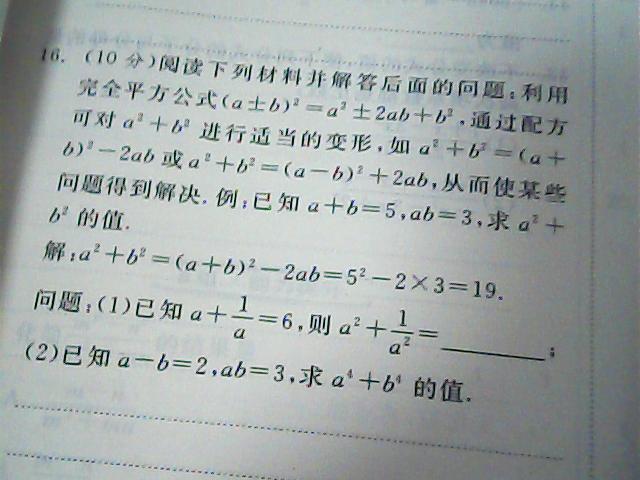 16. (10 分)阅读下列材料并解答后面的问题:利用
完全平方公式(a±b)²=a²±2ab+b²,通过配方
可对 a²+b² 进行适当的变形,如 a²+b²=(a+
b)²-2ab 或 a²+b²=(a-b)²+2ab,从而使某些
问题得到解决. 例:已知 a+b=5,ab=3,求 a²+
b² 的值.
解:a²+b²=(a+b)²-2ab=5²-2×3=19.
问题:(1)已知 a+1/a=6,则 a²+1/a²=________;
(2)已知 a-b=2,ab=3,求 a⁴+b⁴ 的值.